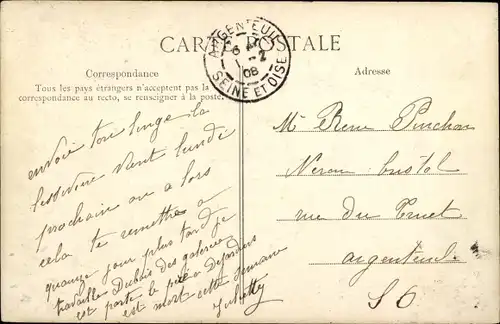 CARTE POSTALE
ARGENTEUIL
6
2
08
SEINE ET OISE
Correspondance
Tous les pays étrangers n'acceptent pas la
correspondance au recto, se renseigner à la poste.
Adresse
envoie ton linge la
lessive vient lundi
prochain ou a lors
cela te remettra a
quainze jour plus tard je
travaille Dubois des galeries
est parti le père
est mort cette semaine
Juliette
Mr René Pinchon
rue du
argenteuil
S O